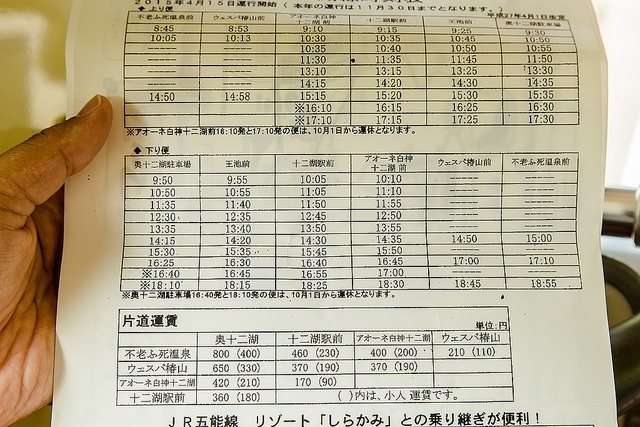 2015年4月15日運行開始 (本年の運行は11月30日までとなります。)
◆ 上り便 平成27年4月1日改定
不老ふ死温泉前 ウェスパ椿山前 アオーネ白神十二湖前 十二湖駅前 王池前 奥十二湖駐車場
8:45 8:53 9:10 9:15 9:25 9:30
10:05 10:13 10:30 10:35 10:45 10:50
----- ----- 10:35 10:40 10:50 10:55
----- ----- 11:30 11:35 11:45 11:50
----- ----- 13:10 13:15 13:25 13:30
----- ----- 14:15 14:20 14:30 14:35
14:50 14:58 15:15 15:20 15:30 15:35
※16:10 16:15 16:25 16:30
※17:10 17:15 17:25 17:30
※アオーネ白神十二湖前16:10発と17:10発の便は、10月1日から運休となります。
◆ 下り便
奥十二湖駐車場 王池前 十二湖駅前 アオーネ白神十二湖前 ウェスパ椿山前 不老ふ死温泉前
9:50 9:55 10:05 10:10 ----- -----
10:50 10:55 11:05 11:10 ----- -----
11:35 11:40 11:50 11:55 ----- -----
12:30 12:35 12:45 12:50 ----- -----
13:35 13:40 13:50 13:55 ----- -----
14:15 14:20 14:30 14:35 14:50 15:00
15:30 15:35 15:45 15:50 ----- -----
16:25 16:30 16:40 16:45 17:00 17:10
※16:40 16:45 16:55 17:00 ----- -----
※18:10 18:15 18:25 18:30 18:45 18:55
※奥十二湖駐車場16:40発と18:10発の便は、10月1日から運休となります。
片道運賃 単位:円
奥十二湖 十二湖駅前 アオーネ白神十二湖 ウェスパ椿山
不老ふ死温泉 800 (400) 460 (230) 400 (200) 210 (110)
ウェスパ椿山 650 (330) 370 (190) 370 (190)
アオーネ白神十二湖 420 (210) 170 (90)
十二湖駅前 360 (180) ( )内は、小人運賃です。
JR五能線 リゾート「しらかみ」との乗り継ぎが便利！